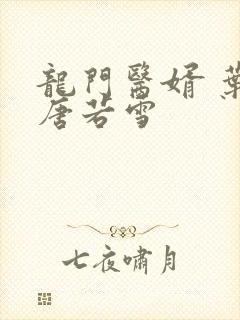 龍門醫婿 葉
唐若雪
七夜嘯月